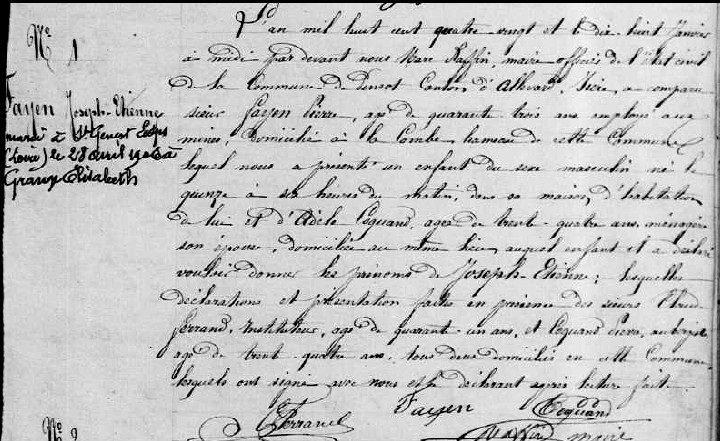 N° 1
Fayen Joseph-Etienne
marié à St Genest Lerpt
(Loire) le 28 avril 1906 à
Grange Elisabeth
L'an mil huit cent quatre vingt et le dix huit Janvier
à midi par devant nous Marc maire officier de l'état civil
de la Commune de Pinsot Canton d'Allevard, Isère, a comparu
sieur Fayen Pierre, agé de quarante trois ans employé aux
mines, domicilié à la Combe hameau de cette Commune
lequel nous a présenté un enfant du sexe masculin né le
quinze à six heures du matin, dans sa maison d'habitation
de lui et d'Adèle Coquand, agée de trente-quatre ans, ménagère
son épouse, domiciliée au même lieu, auquel enfant il a déclaré
vouloir donner les prénoms de Joseph-Etienne; lesquelles
déclarations et présentation faites en présence des sieurs
Ferrand, Instituteur, agé de quarante-un ans, et Coquand Pierre,
agé de trente quatre ans, tous deux domiciliés en cette Commune
lesquels ont signé avec nous et le déclarant après lecture faite.
Ferrand Fayen Coquand
maire
N° 2